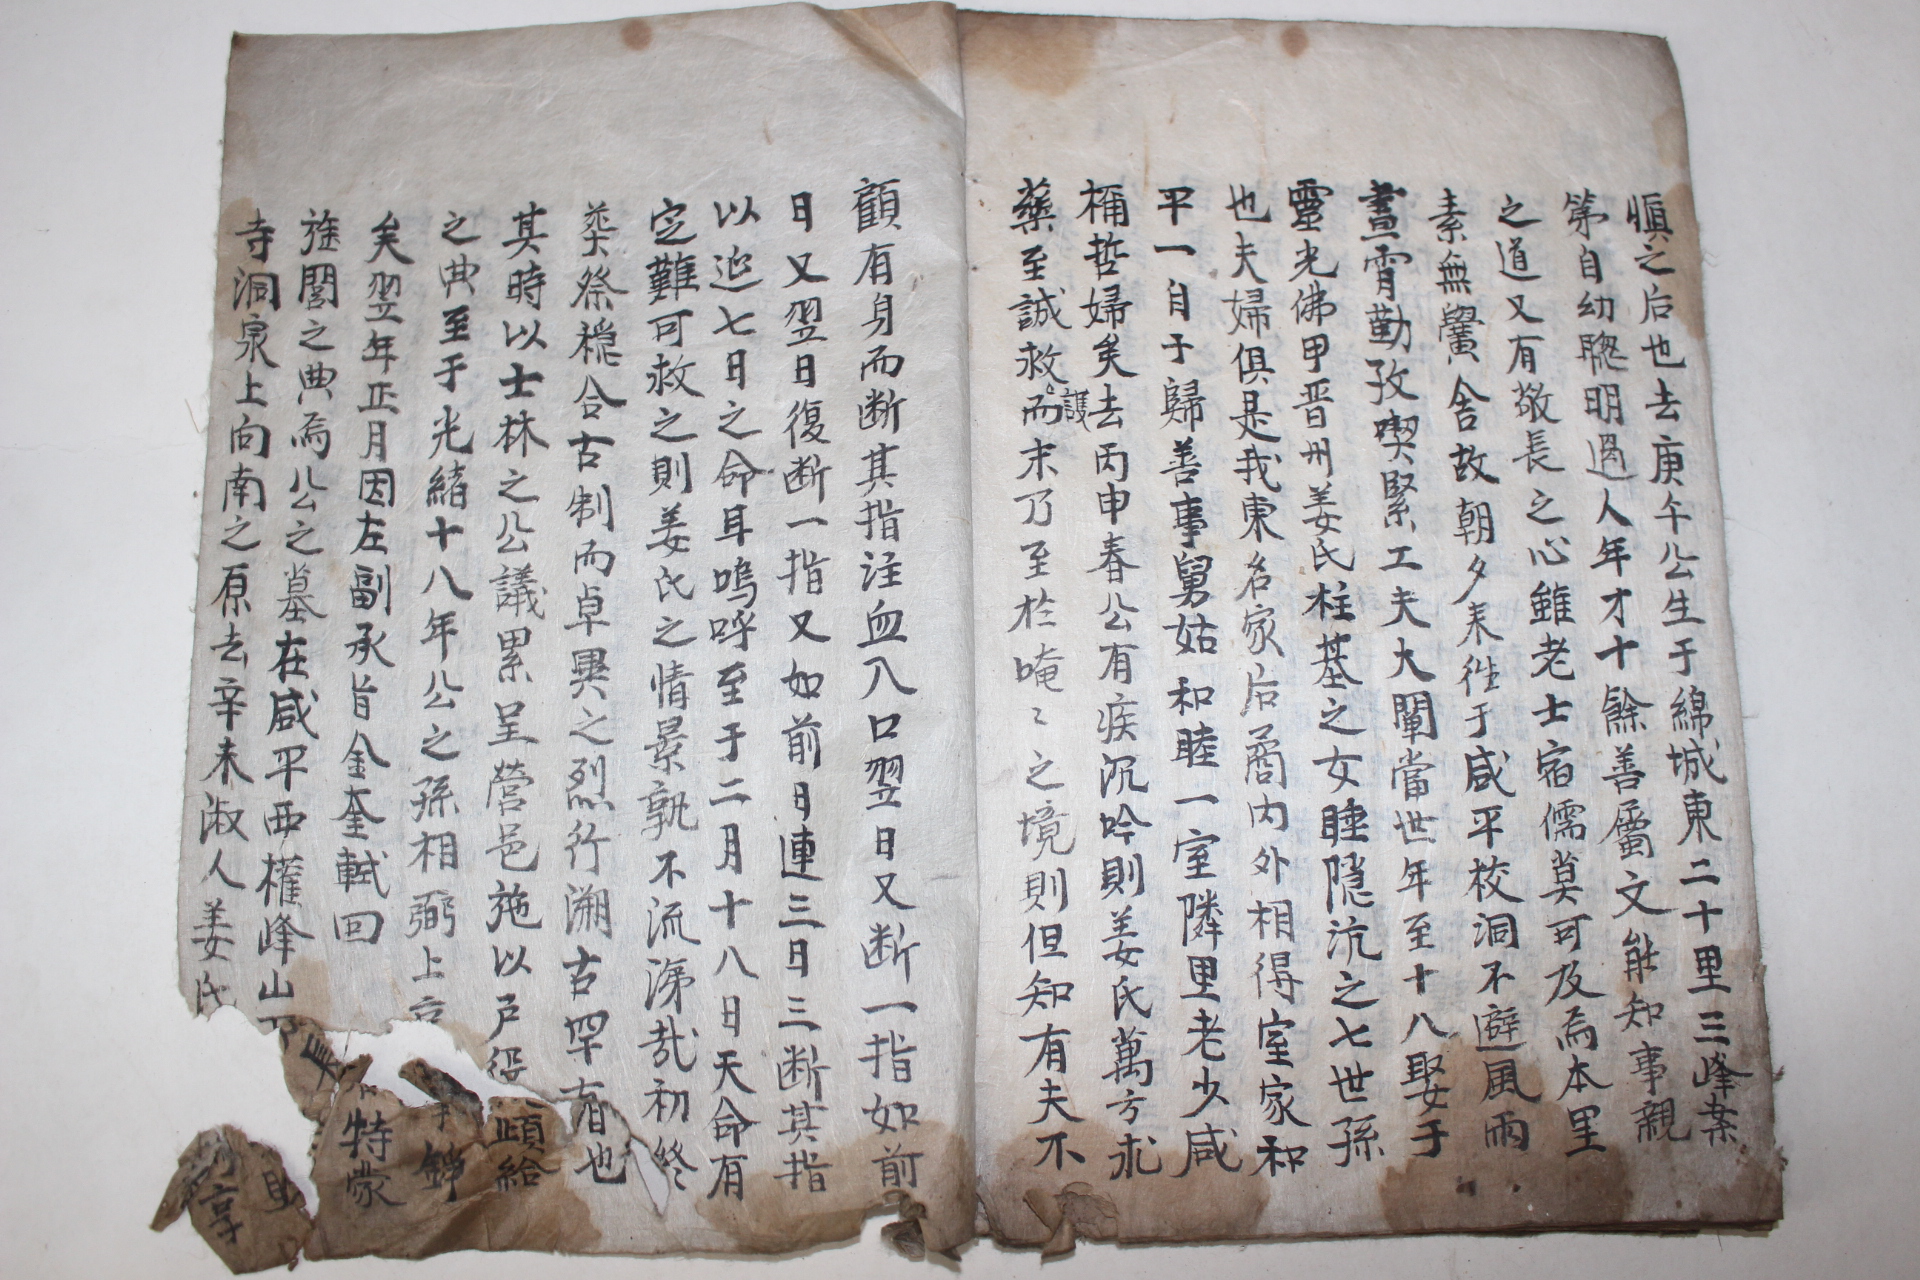 愼之后也去庚午公生于綿城東二十里三峰案
第自幼聰明過人年才十餘善屬文能知事親
之道又有敬長之心雖老士宿儒莫可及焉本里
素無黌舍故朝夕来徃于咸平校洞不避風雨
晝宵勤孜喫緊工夫大闡當世年至十八娶于
靈光佛甲晋州姜氏柱基之女睡隱沆之七世孫
也夫婦俱是我東名家后裔内外相得室家和
平一自于歸善事舅姑和睦一室隣里老少咸
稱哲婦矣去丙申春公有疾沉吟則姜氏萬方求
藥至誠救護而末乃至於唵〻之境則但知有夫不
顧有身而断其指注血入口翌日又断一指如前
日又翌日復断一指又如前日連三日三断其指
以延七日之命耳嗚呼至于二月十八日天命有
定難可救之則姜氏之情景孰不流涕哉初終
葬祭穩合古制而卓異之烈行溯古罕有也
其時以士林之公議累呈營邑施以戸役頉給
之典至于光緖十八年公之孫相弼上京 錚
矣翌年正月因左副承旨金奎軾回 特蒙
旌閭之典焉公之墓在咸平西權峰山下
寺洞泉上向南之原去辛未淑人姜氏 享